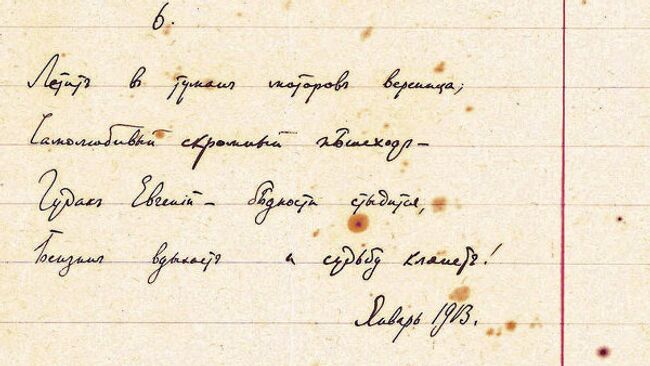 6.
Летитъ въ туманъ моторовъ вереница;
Самолюбивый скромный пѣшеходъ —
Чудакъ Евгеній — бѣдности стыдится,
Бензинъ вдыхаетъ и судьбу клянетъ!
Январь 1913.